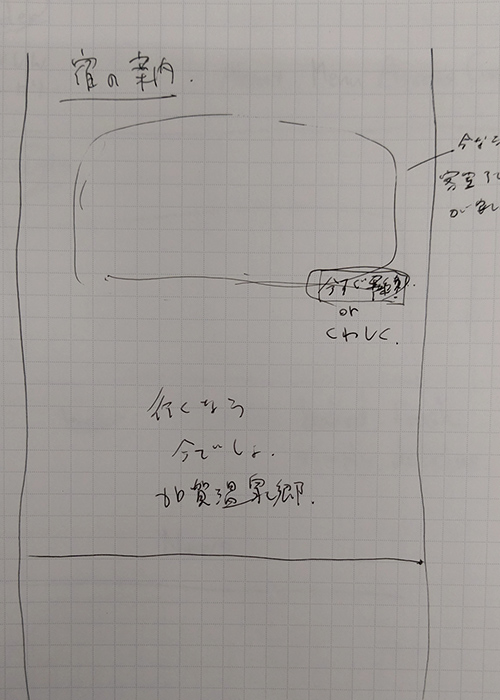 宿の案内.
今なら
客室
が
今すぐ
or
くわしく.
行くなら
今でしょ.
加賀温泉郷.